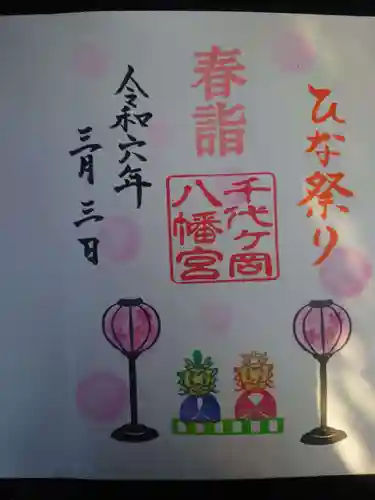 ひな祭り
春詣
千代ケ岡
八幡宮
令和六年
三月三日